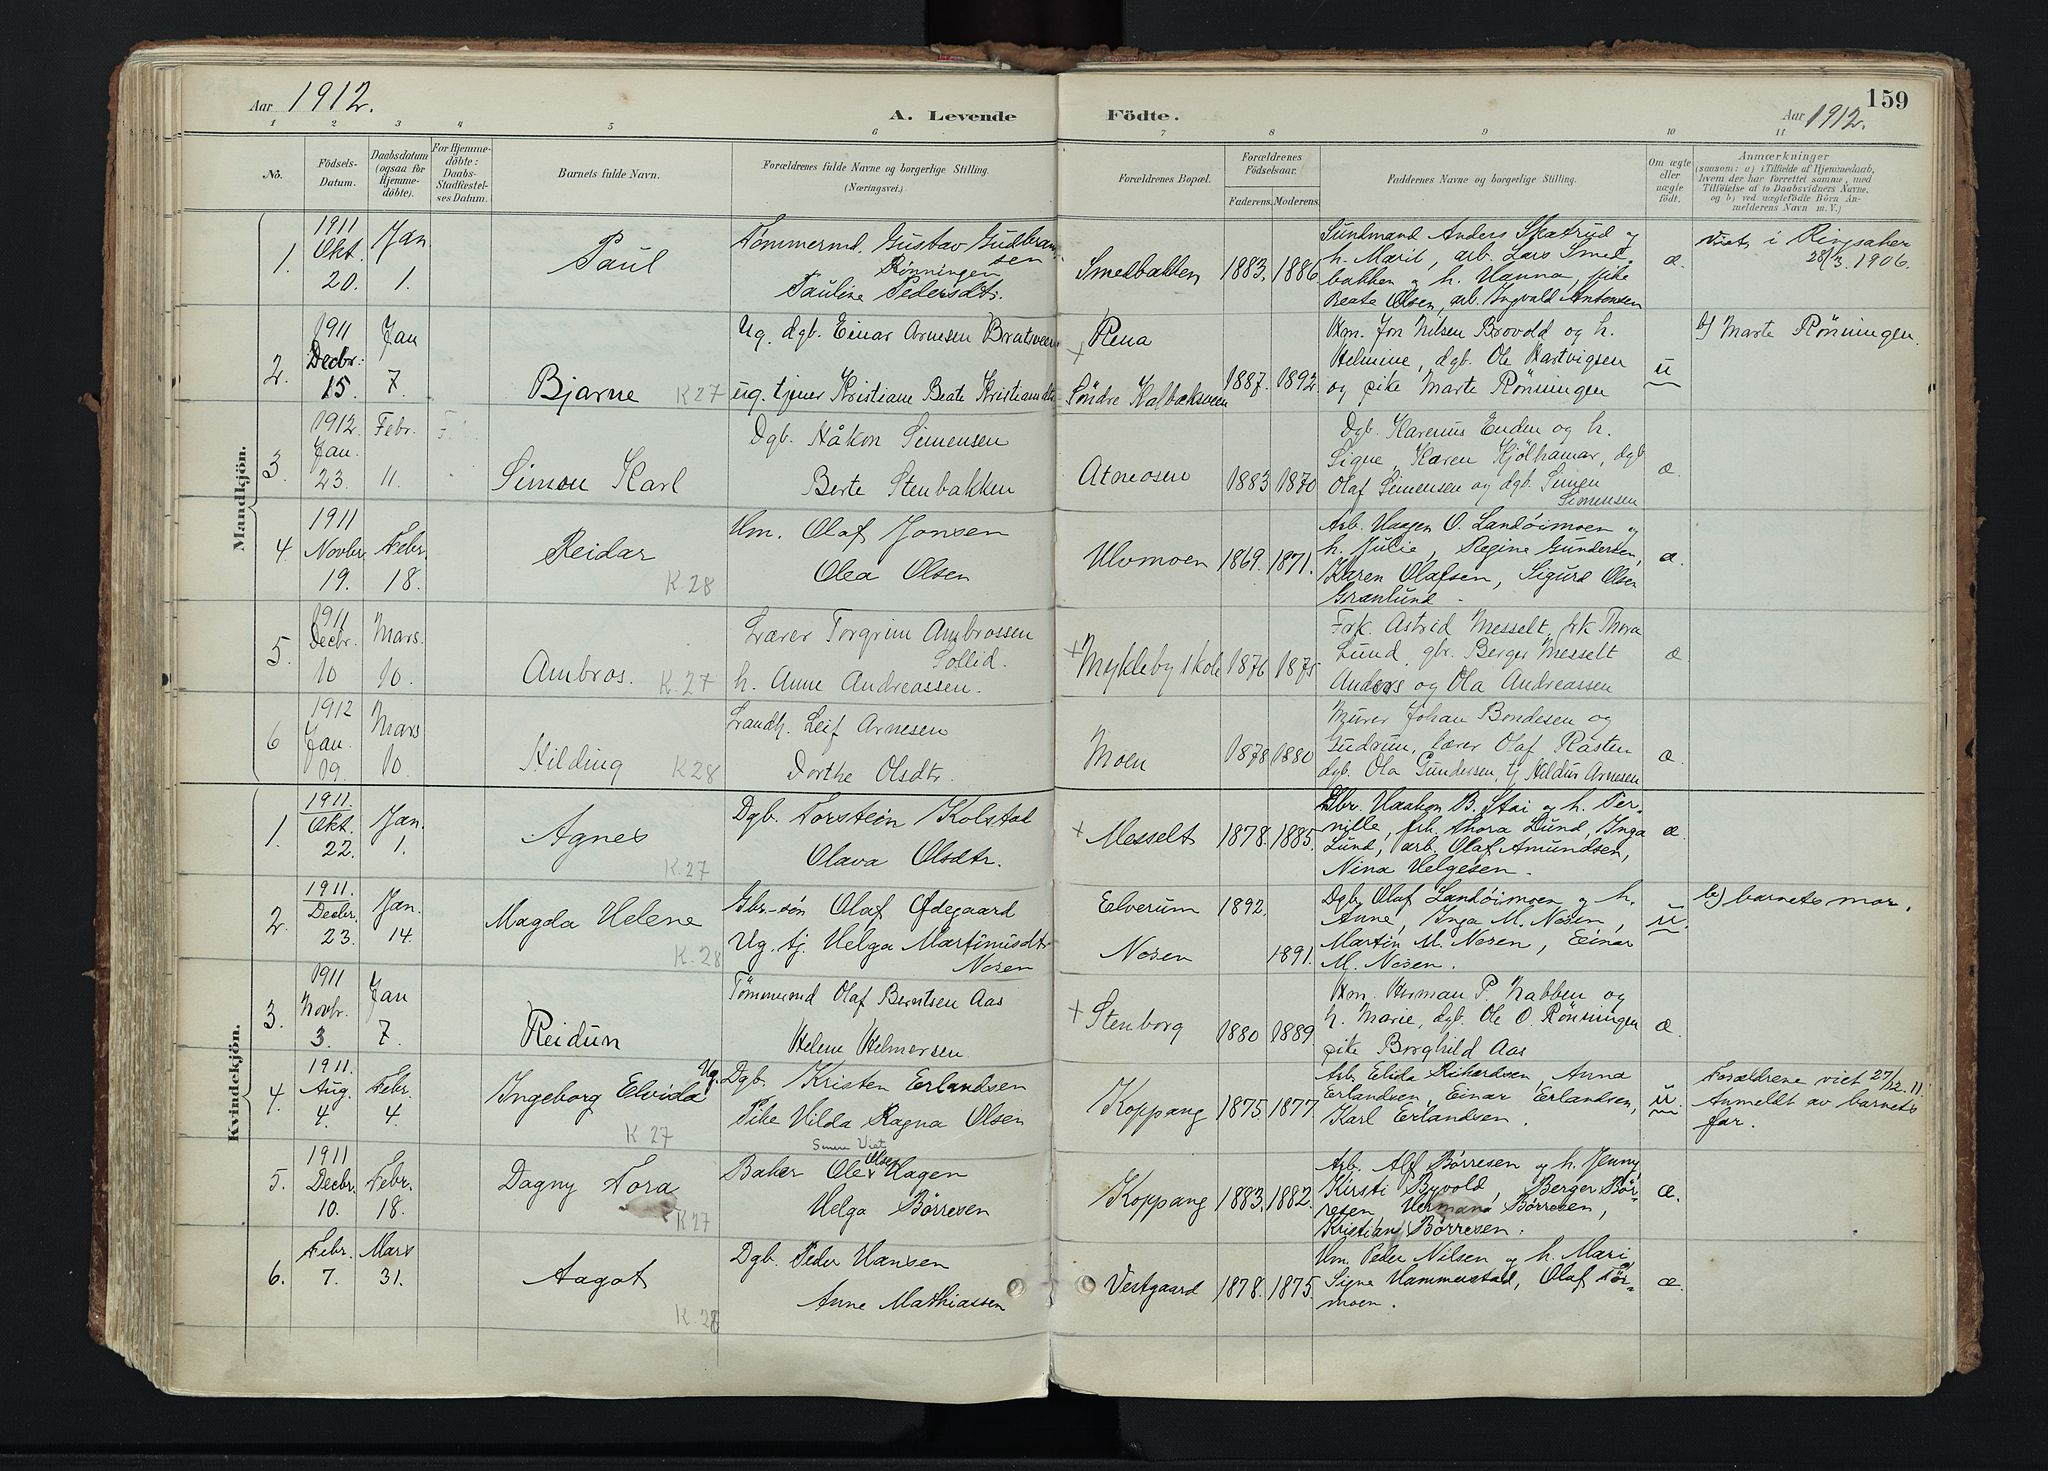 159
Aar 1912.
A. Levende
Födte.
Aar 1912.
1 2 3 4 5 6 7 8 9 10 11
No.
Födsels-
Datum.
Daabsdatum
(ogsaa for
Hjemme-
döbte).
For Hjemme-
döbte:
Daabs-
Stadfæstel-
ses Datum.
Barnets fulde Navn.
Forældrenes fulde Navne og borgerlige Stilling.
(Næringsvei.)
Forældrenes Bopæl.
Forældrenes
Födselsaar.
Faderens. Moderens.
Faddernes Navne og borgerlige Stilling.
Om ægte
eller
uægte
födt.
Anmærkninger
(saasom: a) i Tilfælde af Hjemmedaab,
hvem der har forrettet samme, med
Tilföielse af to Daabsvidners Navne.
og b) ved uægtefödte Börn An-
melderens Navn m. V.)
Mandkjön.
1.
1911
Okt.
20.
Jan.
1.
Paul
Tømmermd. Gustav Gudbran-
sen
Rønningen
Pauline Pedersdtr.
Smedbakken
1883. 1886
Sundmand Anders Skatrud og
h. Marit, arb. Lars Smed-
bakken og h. Hanna, pike
Beate Olsen, arb. Ingvald Antonsen
æ.
viet i Ringsaker
28/3. 1906.
2.
1911
Decbr.
15.
Jan
7.
Bjarne K 27
Ug. dgb. Einar Arnesen
ug. tjener Kristiane Beate Kristiansdtr
+ Rena
Søndre
1887. 1892
Hm. Jon Nilsen Brovold og h.
Helmine, dgb. Ole Hartvigsen
og pike Marte Rønningen
u
b) Marte Rønningen.
3.
1912.
Jan.
23.
Febr.
11.
Simon Karl
Dgb. Håkon Simensen
Berte Stenbakken
Atneosen
1883 1870
Dgb. Karenus Enden og h.
Signe, Karen Kjølhamar, dgb
Olaf Simensen og dgb. Simen
Simensen
æ
4.
1911
Novbr.
19.
Febr.
18.
Reidar
K. 28
Hm. Olaf Jonsen
Olea Olsen
Ulvmoen
1869. 1871.
Arb. Haagen O. Landøimoen og
h. Julie, Regine Gundersen,
Karen Olafsen, Sigurd Olsen
Grønlund.
æ.
5.
1911
Decbr.
10
Mars.
10.
Ambros. K. 27
Lærer Torgrim Ambrossen
Sollid.
h. Anne Andreassen.
+ Mykleby skole
1876 1875
Frk. Astrid Messelt, frk Thora
Lund, gbr. Berger Messelt
Anders og Ola Andreassen
æ
6
1912
Jan.
09.
Mars
10.
Hilding K 28
Landh. Leif Arnesen
Dorthe Olsdtr.
Moen
1878 1880
Murer Johan Bondesen og
Gudrun, lærer Olaf Rasten
dgb. Ola Gundersen, tj Hildur Arnesen
æ.
Kvindekjön.
1.
1911.
Okt.
22.
Jan.
1.
Agnes
K. 27
Dgb. Torstein Kolstad
Olava Olsdtr.
+ Messelt
1878. 1885.
Gbr. Haakon B. Stai og h. Per-
nille, frk. Thora Lund, Inga
Lund, arb. Olaf Amundsen,
Nina Helgesen.
æ.
2.
1911.
Decbr.
23.
Jan.
14.
Magda Helene
K. 28
Gbr-søn Olaf Ødegaard
Ug. tj. Helga Martinusdtr
Nosen
Elverum 1892.
Nosen 1891.
Dgb. Olaf Landøimoen og h.
Anne, Inga M. Nosen,
Martin M. Nosen, Einar
M. Nosen.
u.
b) barnets mor.
3.
1911
Novbr.
3.
Jan
7.
Reidun
Tømmermd Olaf Berntsen Aas
Helene Helmersen.
+ Stenborg
1880 1889
Hm. Herman P. Nabben og
h. Marie, dgb. Ole O. Rønningen
pike Borghild Aas
æ.
4.
1911.
Aug.
4.
Febr.
4.
Ingeborg Elvida
K 27
Ug. Dgb. Kristen Erlandsen
Pike Hilda Ragna Olsen
Senere Viet
Koppang
1875. 1877.
Arb. Elida Rikardsen, Anna
Erlandsen, Einar Erlandsen,
Karl Erlandsen.
u.
Forældrene viet 27/12. 11.
Anmeldt av barnets
far.
5.
1911
Decbr.
10.
Febr.
18.
Dagny Tora
K 27
Olsen
Baker Ole Hagen
Helga Børresen
Koppang
1883. 1882.
Arb. Alf Børresen og h. Jenny,
Kirsti Byvold, Berger Bør-
resen, Hermana Børresen,
Kristiane Børresen.
æ.
6.
Febr.
7.
Mars
31.
Aagot
K. 28
Dgb. Peder Hansen
Anne Mathiassen
Vestgaard
1878. 1875.
Hm. Peder Nilsen og h. Mari
Signe Hammerstad, Olaf Tør-
moen.
æ.